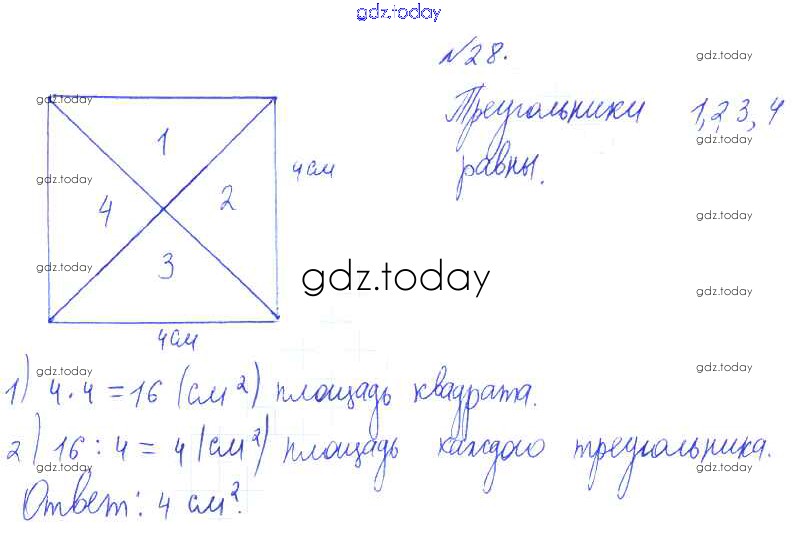 gdz.today
№28.
gdz.today
Треугольники 1,2,3,4
gdz.today
равны.
gdz.today
1
4см
gdz.today
2
4
gdz.today
3
gdz.today
gdz.today
gdz.today
4см
gdz.today
gdz.today
1) 4 · 4 = 16 (см²) площадь квадрата.
2) 16 : 4 = 4 (см²) площадь каждого треугольника.
gdz.today
gdz.today
Ответ: 4 см².